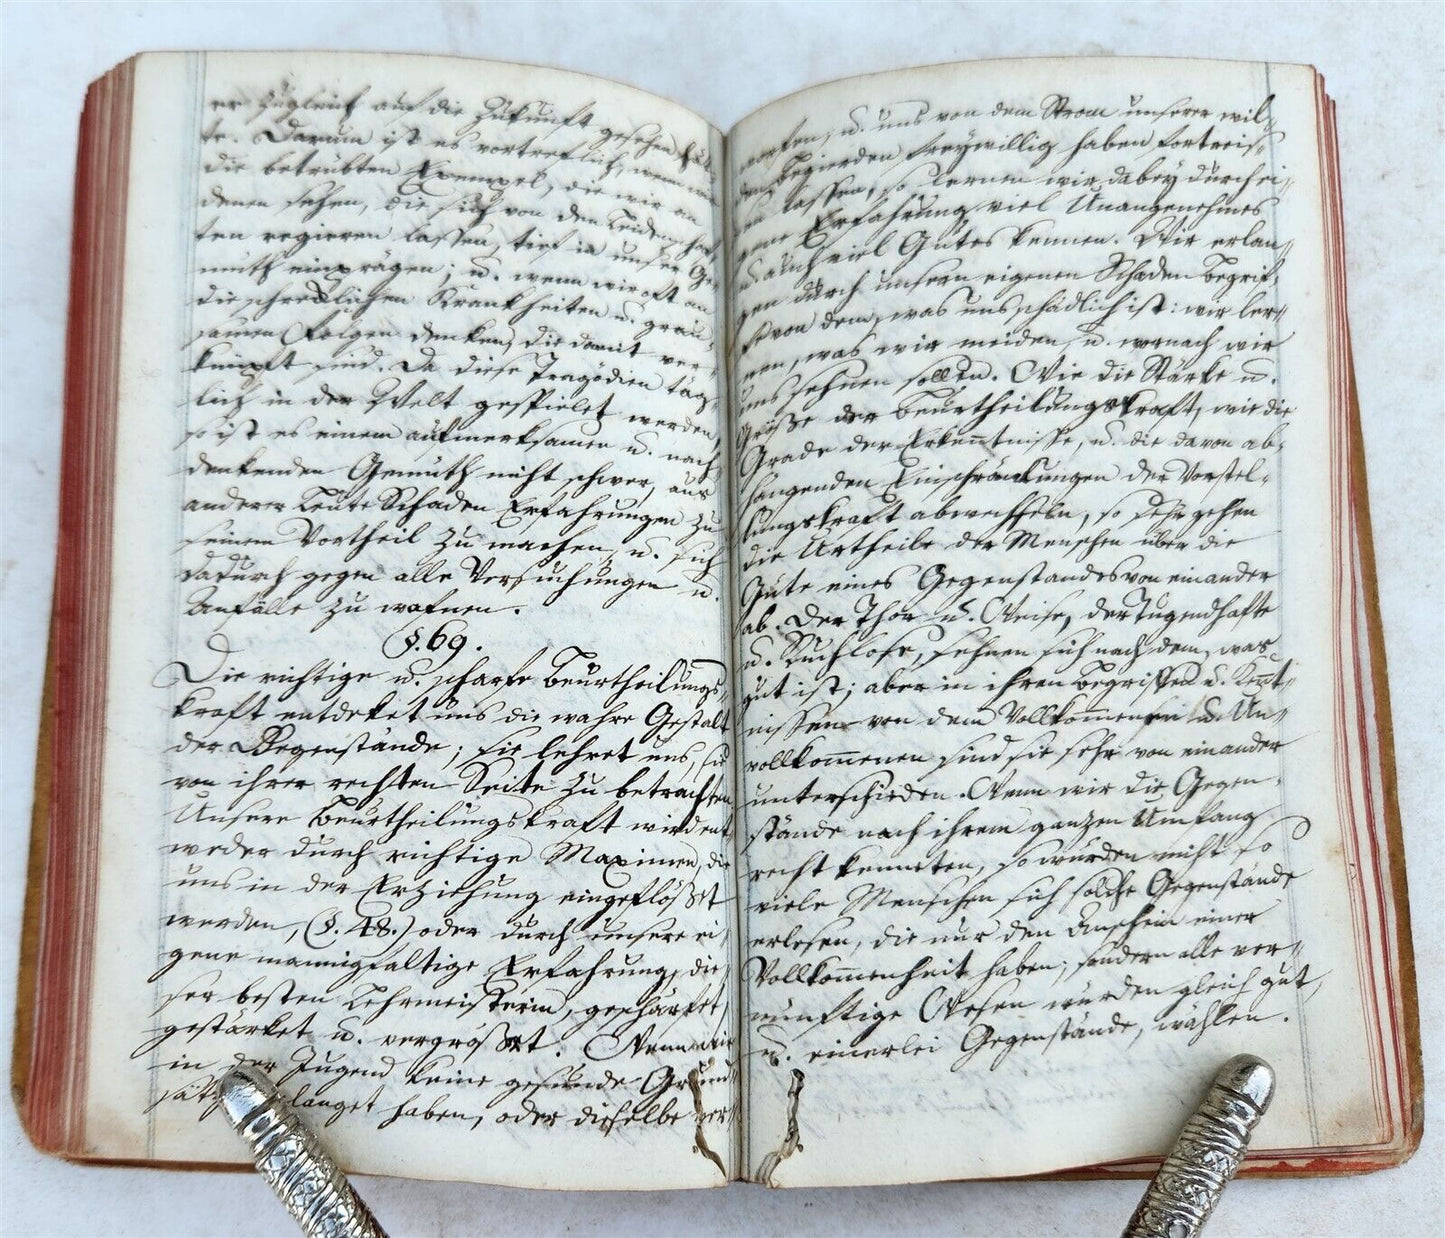 er zugleich auf die Zukunft gesehen hät-
te. Darum ist es vortreflich, wenn wir
die betrübten Exempel, die wir an
denen sehen, die sich von den Leidenschaf-
ten regieren lassen, tief in unser Ge-
müth einprägen; u. wenn wir oft an
die schrecklichen Krankheiten u. grau-
samen Folgen denken, die damit ver-
knüpft sind. Da diese Tragödien täg-
lich in der Welt gespielet werden,
so ist es einem aufmerksamen u. nach-
denkenden Gemüth nicht schwer, aus
anderer Leute Schaden Erfahrungen zu
seinem Vortheil zu machen, u. sich
dadurch gegen alle Versuchungen u.
Anfälle zu wafnen.
§. 69.
Die richtige u. scharfe Beurtheilungs-
kraft entdeket uns die wahre Gestalt
der Gegenstände; sie lehret uns, sie
von ihrer rechten Seite zu betrachten.
Unsere Beurtheilungskraft wird ent-
weder durch richtige Maximen, die
uns in der Erziehung eingeflößet
werden, (§. 48.) oder durch unsere ei-
gene mannigfaltige Erfahrung, die-
ser besten Lehrmeisterin, geschärfet,
gestärket u. vergrößert. Wenn wir
in der Jugend keine gesunde Grund-
sätze langet haben, oder dieselbe ver-
worfen, u. uns von dem Strom unserer wil-
den Begierden freywillig haben fortreis-
sen lassen, so lernen wir dabey durch ei-
gene Erfahrung viel Unangenehmes
u. auch viel Gutes kennen. Wir erlan-
gen durch unsern eigenen Schaden Begrif-
fe von dem, was uns schädlich ist: wir ler-
nen, was wir meiden, u. wornach wir
uns sehnen sollen. Wie die Stärke u.
Größe der Beurtheilungskraft, wie die
Grade der Erkenntnisse, u. die davon ab-
hangenden Einschränkungen der Vorstel-
lungskraft abwechseln, so sehr gehen
die Urtheile der Menschen über die
Güte eines Gegenstandes von einander
ab. Der Thor u. Weise, der Tugendhafte
u. Ruchlose, sehnen sich nach dem, was
gut ist; aber in ihren Begriffen u. Kennt-
nissen von dem Vollkommenen u. Un-
vollkommenen sind sie sehr von einander
unterschieden. Wenn wir die Gegen-
stände nach ihrem ganzen Umfang
recht kenneten, so würden nicht so
viele Menschen sich solche Gegenstände
erlesen, die nur den Anschein einer
Vollkommenheit haben; sondern alle ver-
nünftige Wesen würden gleich gut,
u. einerlei Gegenstände, wählen.